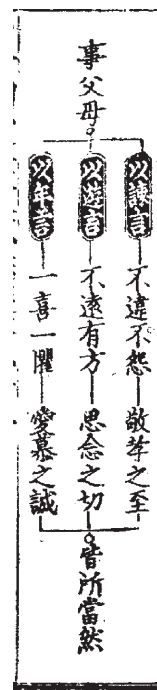 事父母
以諫言 不違不怨 敬孝之至
以遊言 不遠有方 思念之切
以年言 一喜一懼 愛慕之誠
皆所當然